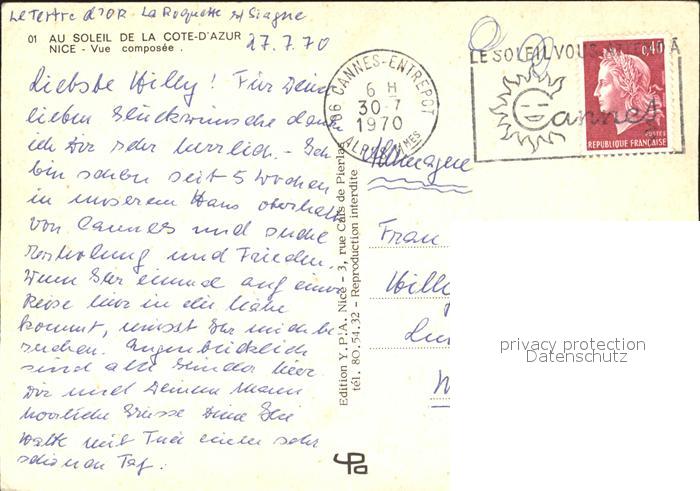 Le Tertre d'Or La Roquette s/ Siagne
01 AU SOLEIL DE LA COTE-D'AZUR
NICE - Vue composée.
27.7.70
Liebste Hilly! Für Deine
lieben Glückwünsche danke
ich Dir sehr herzlich. - Ich
bin schon seit 5 Wochen
in unserem Haus oberhalb
von Cannes und suche
Erholung und Frieden.
Wenn Ihr einmal auf einer
Reise hier in die Nähe
kommt, müsst Ihr mich be
suchen. Augenblicklich
sind alle Kinder hier.
Dir und Deinem Mann
herzliche Grüsse Deine
mit einen sehr
schönen Tag.
Edition Y.P.A. Nice - 3, rue Caïs de Pierlas
tél. 80.54.32 - Reproduction interdite
06 CANNES-ENTREPOT
6 H
30-7
1970
ALPES MMES
LE SOLEIL VOUS ATTEND A
Cannes
0,40
POSTES
REPUBLIQUE FRANÇAISE
Allemagne
Frau
Hilly
privacy protection
Datenschutz